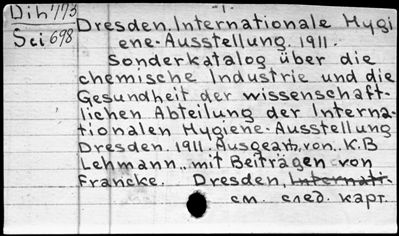 Dih 773
-1-
Sci 698
Dresden, Internationale Hygi
ene-Ausstellung. 1911.
Sonderkatalog über die
chemische Industrie und die
Gesundheit der wissenschaft-
lichen Abteilung der Interna-
tionalen Hygiene-Ausstellung
Dresden. 1911. Ausgearb. von. K.B
Lehmann mit Beiträgen von
Francke. Dresden, Internatr.
см. след. карт.